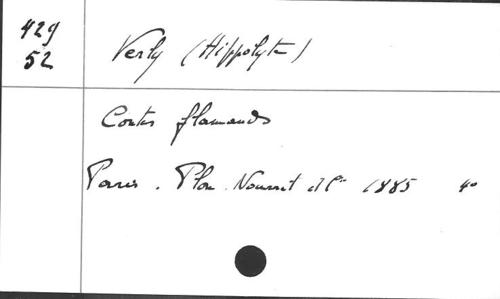 429
52
Verly (Hippolyte)
Contes flamands
Paris. Plon. Nourrit et Cie 1885 4o